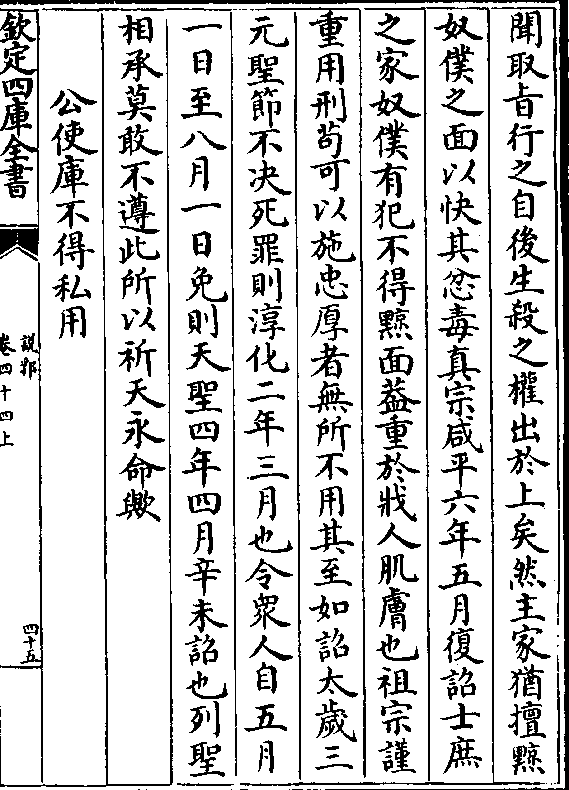 聞取旨行之自後生殺之權出於上矣然主家猶擅黥
奴僕之面以快其忿毒真宗咸平六年五月復詔士庶
之家奴僕有犯不得黥面葢重於戕人肌膚也祖宗謹
重用刑苟可以施忠厚者無所不用其至如詔太歲三
元聖節不決死罪則淳化二年三月也令衆人自五月
一日至八月一日免則天聖四年四月辛未詔也列聖
相承莫敢不遵此所以祈天永命歟
公使庫不得私用
欽定四庫全書
說郛
卷四十四上
四十五